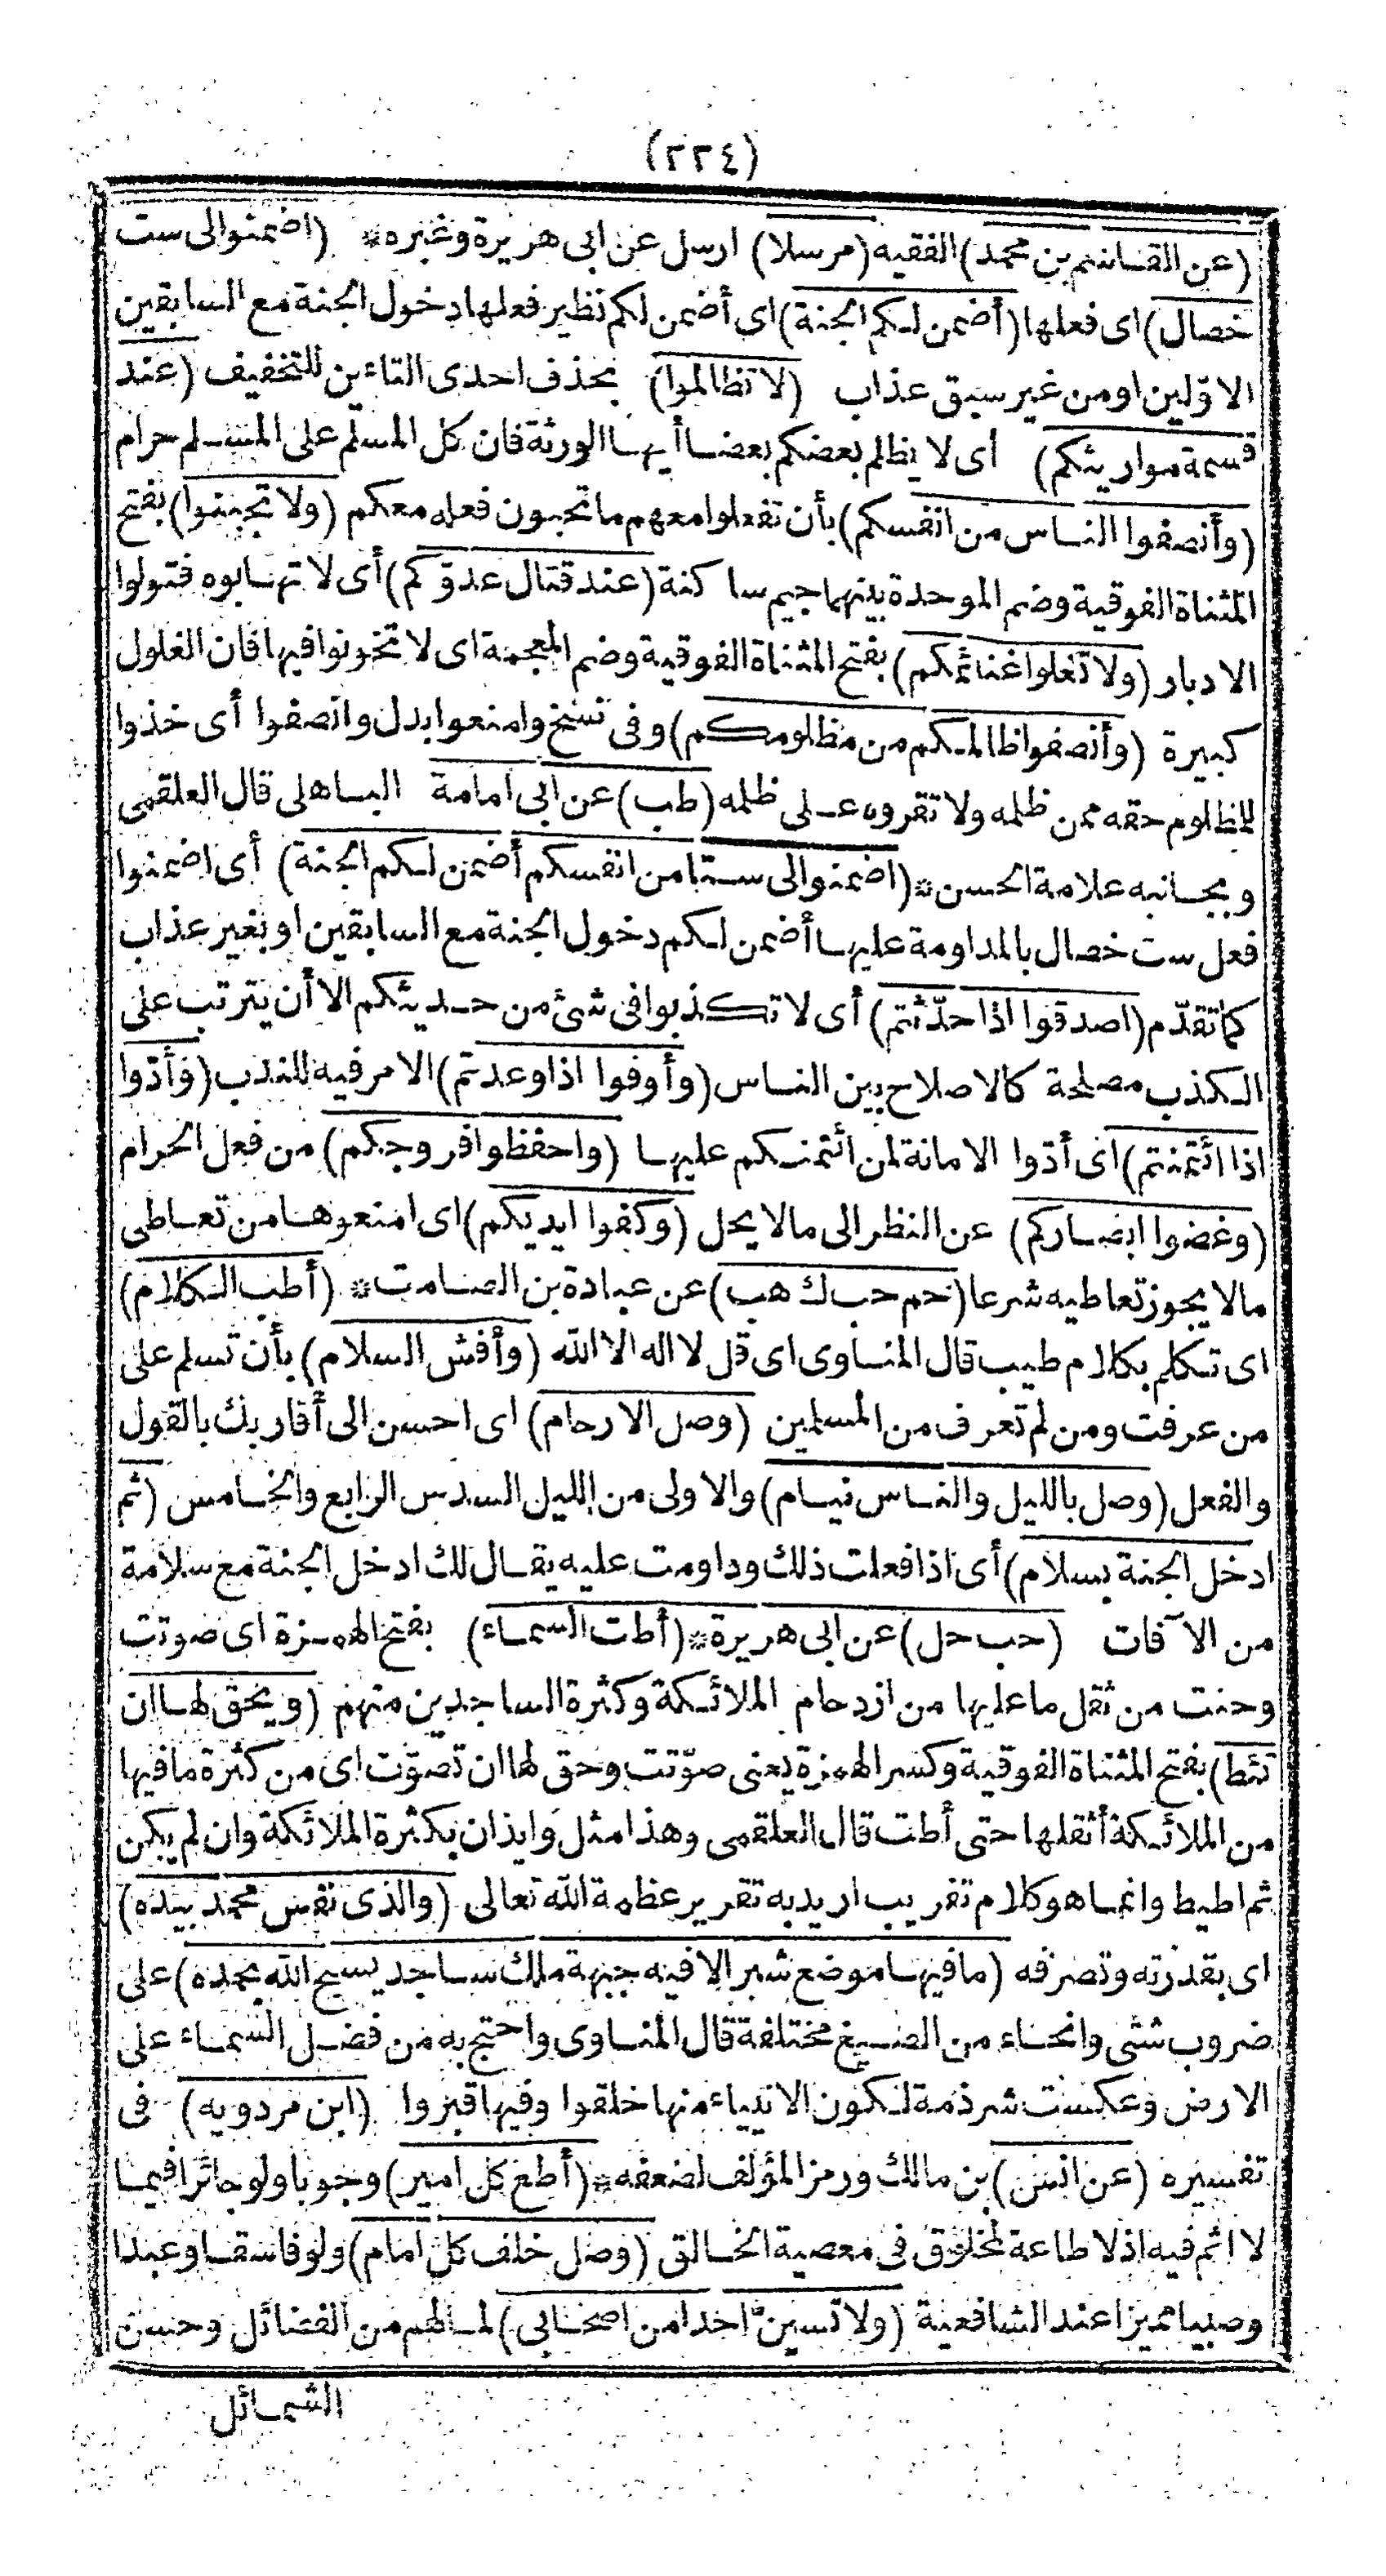 (٢٢٤)
(عن القاسم بن محمد) الفقيه (مرسلا) ارسل عن ابى هريرة وغيره * (اضمنوا لى ست
خصال) اى فعلها (أضمن لكم الجنة) اى أضمن لكم نظير فعلها دخول الجنة مع السابقين
الاوّلين او من غير سبق عذاب (لا تظالموا) بحذف احدى التاءين للتخفيف (عند
قسمة مواريثكم) أى لا يظلم بعضكم بعضا أيها الورثة فان كل المسلم على المسلم حرام
(وأنصفوا الناس من انفسكم) بأن تفعلوا معهم ما تحبون فعله معكم (ولا تجبنوا) بفتح
المثناة الفوقية وضم الموحدة بينهما جيم ساكنة (عند قتال عدوّكم) أى لا تهابوه فتولوا
الادبار (ولا تغلوا غنائمكم) بفتح المثناة الفوقية وضم المعجمة اى لا تخونوا فيها فان الغلول
كبيرة (وأنصفوا ظالمكم من مظلومكم) وفى نسخ وامنعوا بدل وانصفوا أى خذوا
للمظلوم حقه ممن ظلمه ولا تقروه على ظلمه (طب) عن ابى امامة الباهلى قال العلقمى
وبجانبه علامة الحسن * (اضمنوا لى ستا من انفسكم أضمن لكم الجنة) أى اضمنوا
فعل ست خصال بالمداومة عليها أضمن لكم دخول الجنة مع السابقين او بغير عذاب
كما تقدّم (اصدقوا اذا حدّثتم) أى لا تكذبوا فى شئ من حديثكم الا أن يترتب على
الكذب مصلحة كالاصلاح بين الناس (وأوفوا اذا وعدتم) الامر فيه للندب (وأدّوا
اذا ائتمنتم) اى أدّوا الامانة لمن ائتمنكم عليها (واحفظوا فروجكم) من فعل الحرام
(وغضوا ابصاركم) عن النظر الى ما لا يحل (وكفوا ايديكم) اى امنعوها من تعاطى
ما لا يجوز تعاطيه شرعا (حم حب ك هب) عن عبادة بن الصامت * (أطب الكلام)
اى تكلم بكلام طيب قال المناوى اى قل لا اله الا الله (وأفش السلام) بأن تسلم على
من عرفت ومن لم تعرف من المسلمين (وصل الارحام) اى احسن الى أقاربك بالقول
والفعل (وصل بالليل والناس نيام) والاولى من الليل السدس الرابع والخامس (ثم
ادخل الجنة بسلام) أى اذا فعلت ذلك وداومت عليه يقال لك ادخل الجنة مع سلامة
من الآفات (حب حل) عن ابى هريرة * (أطت السماء) بفتح الهمزة اى صوتت
وحنت من ثقل ما عليها من ازدحام الملائكة وكثرة الساجدين منهم (ويحق لها ان
تئط) بفتح المثناة الفوقية وكسر الهمزة يعنى صوّتت وحق لها ان تصوّت اى من كثرة ما فيها
من الملائكة أثقلها حتى أطت قال العلقمى وهذا مثل وايذان بكثرة الملائكة وان لم يكن
ثم اطيط وانما هو كلام تقريب اريد به تقرير عظمة الله تعالى (والذى نفس محمد بيده)
اى بقدرته وتصرفه (ما فيها موضع شبر الا فيه جبهة ملك ساجد يسبح الله بحمده) على
ضروب شتى وانحاء من الصيغ مختلفة قال المناوى واحتج به من فضل السماء على
الارض وعكست شرذمة لكون الانبياء منها خلقوا وفيها قبروا (ابن مردويه) فى
تفسيره (عن انس) بن مالك ورمز المؤلف لضعفه * (أطع كل امير) وجوبا ولو جائرا فيما
لا اثم فيه اذ لا طاعة لمخلوق فى معصية الخالق (وصل خلف كل امام) ولو فاسقا وعبدا
وصبيا مميزا عند الشافعية (ولا تسبنّ احدا من اصحابى) لما لهم من الفضائل وحسن
الشمائل